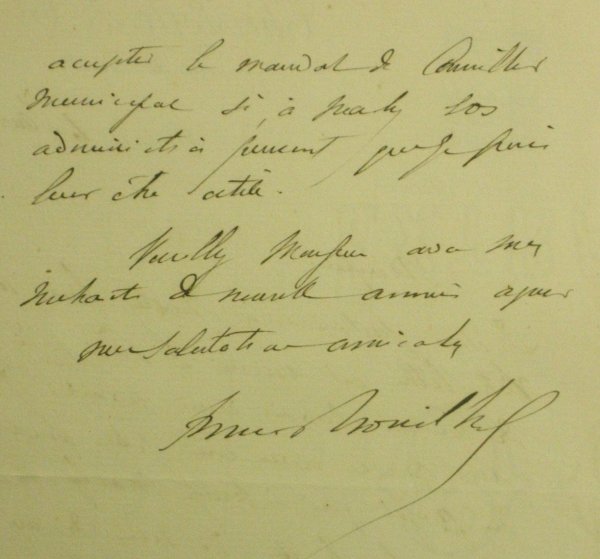 accepter le mandat de Conseiller
municipal si, à Marly, vos
administrés pensent que je puis
leur être utile.
Veuillez Monsieur avec mes
souhaits de nouvelle année agréer
mes salutations amicales